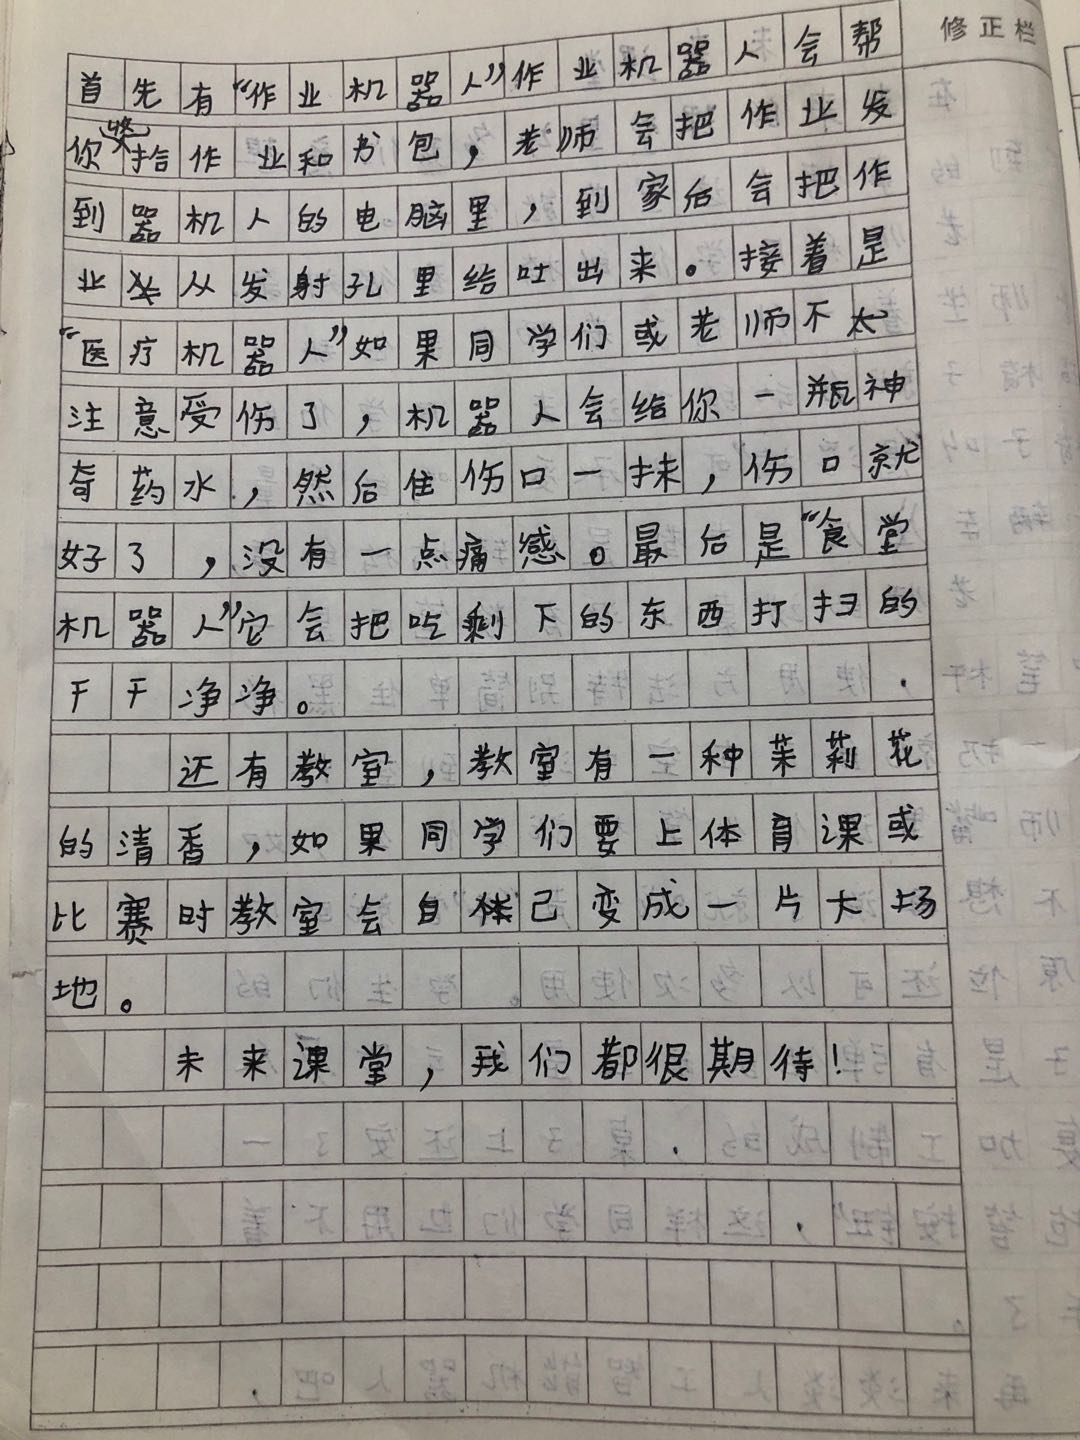 修正栏
首先有“作业机器人”作业机器人会帮
你收拾作业和书包，老师会把作业发
到器机人的电脑里，到家后会把作
业从发射孔里给吐出来。接着是
“医疗机器人”如果同学们或老师不太
注意受伤了，机器人会给你一瓶神
奇药水，然后往伤口一抹，伤口就
好了，没有一点痛感。最后是“食堂
机器人”它会把吃剩下的东西打扫的
干干净净。
还有教室，教室有一种茉莉花
的清香，如果同学们要上体育课或
比赛时教室会自己变成一片大场
地。
未来课堂，我们都很期待！